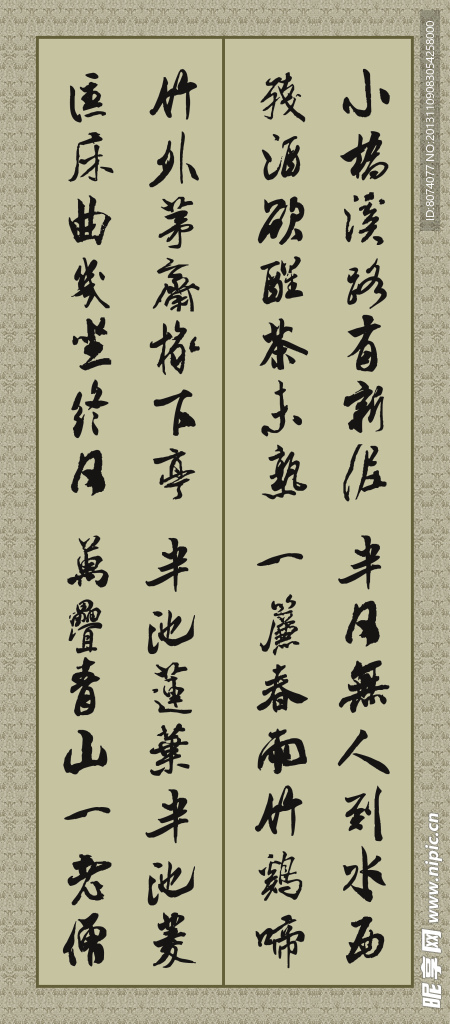 小橋溪路有新泥 半日無人到水西
殘酒欲醒茶未熟 一簾春雨竹鷄啼
竹外茅齋橡下亭 半池蓮葉半池菱
匡床曲幾坐終日 萬疊青山一老僧
ID:8074077 NO:20131109083054258000
昵享网 www.nipic.cn